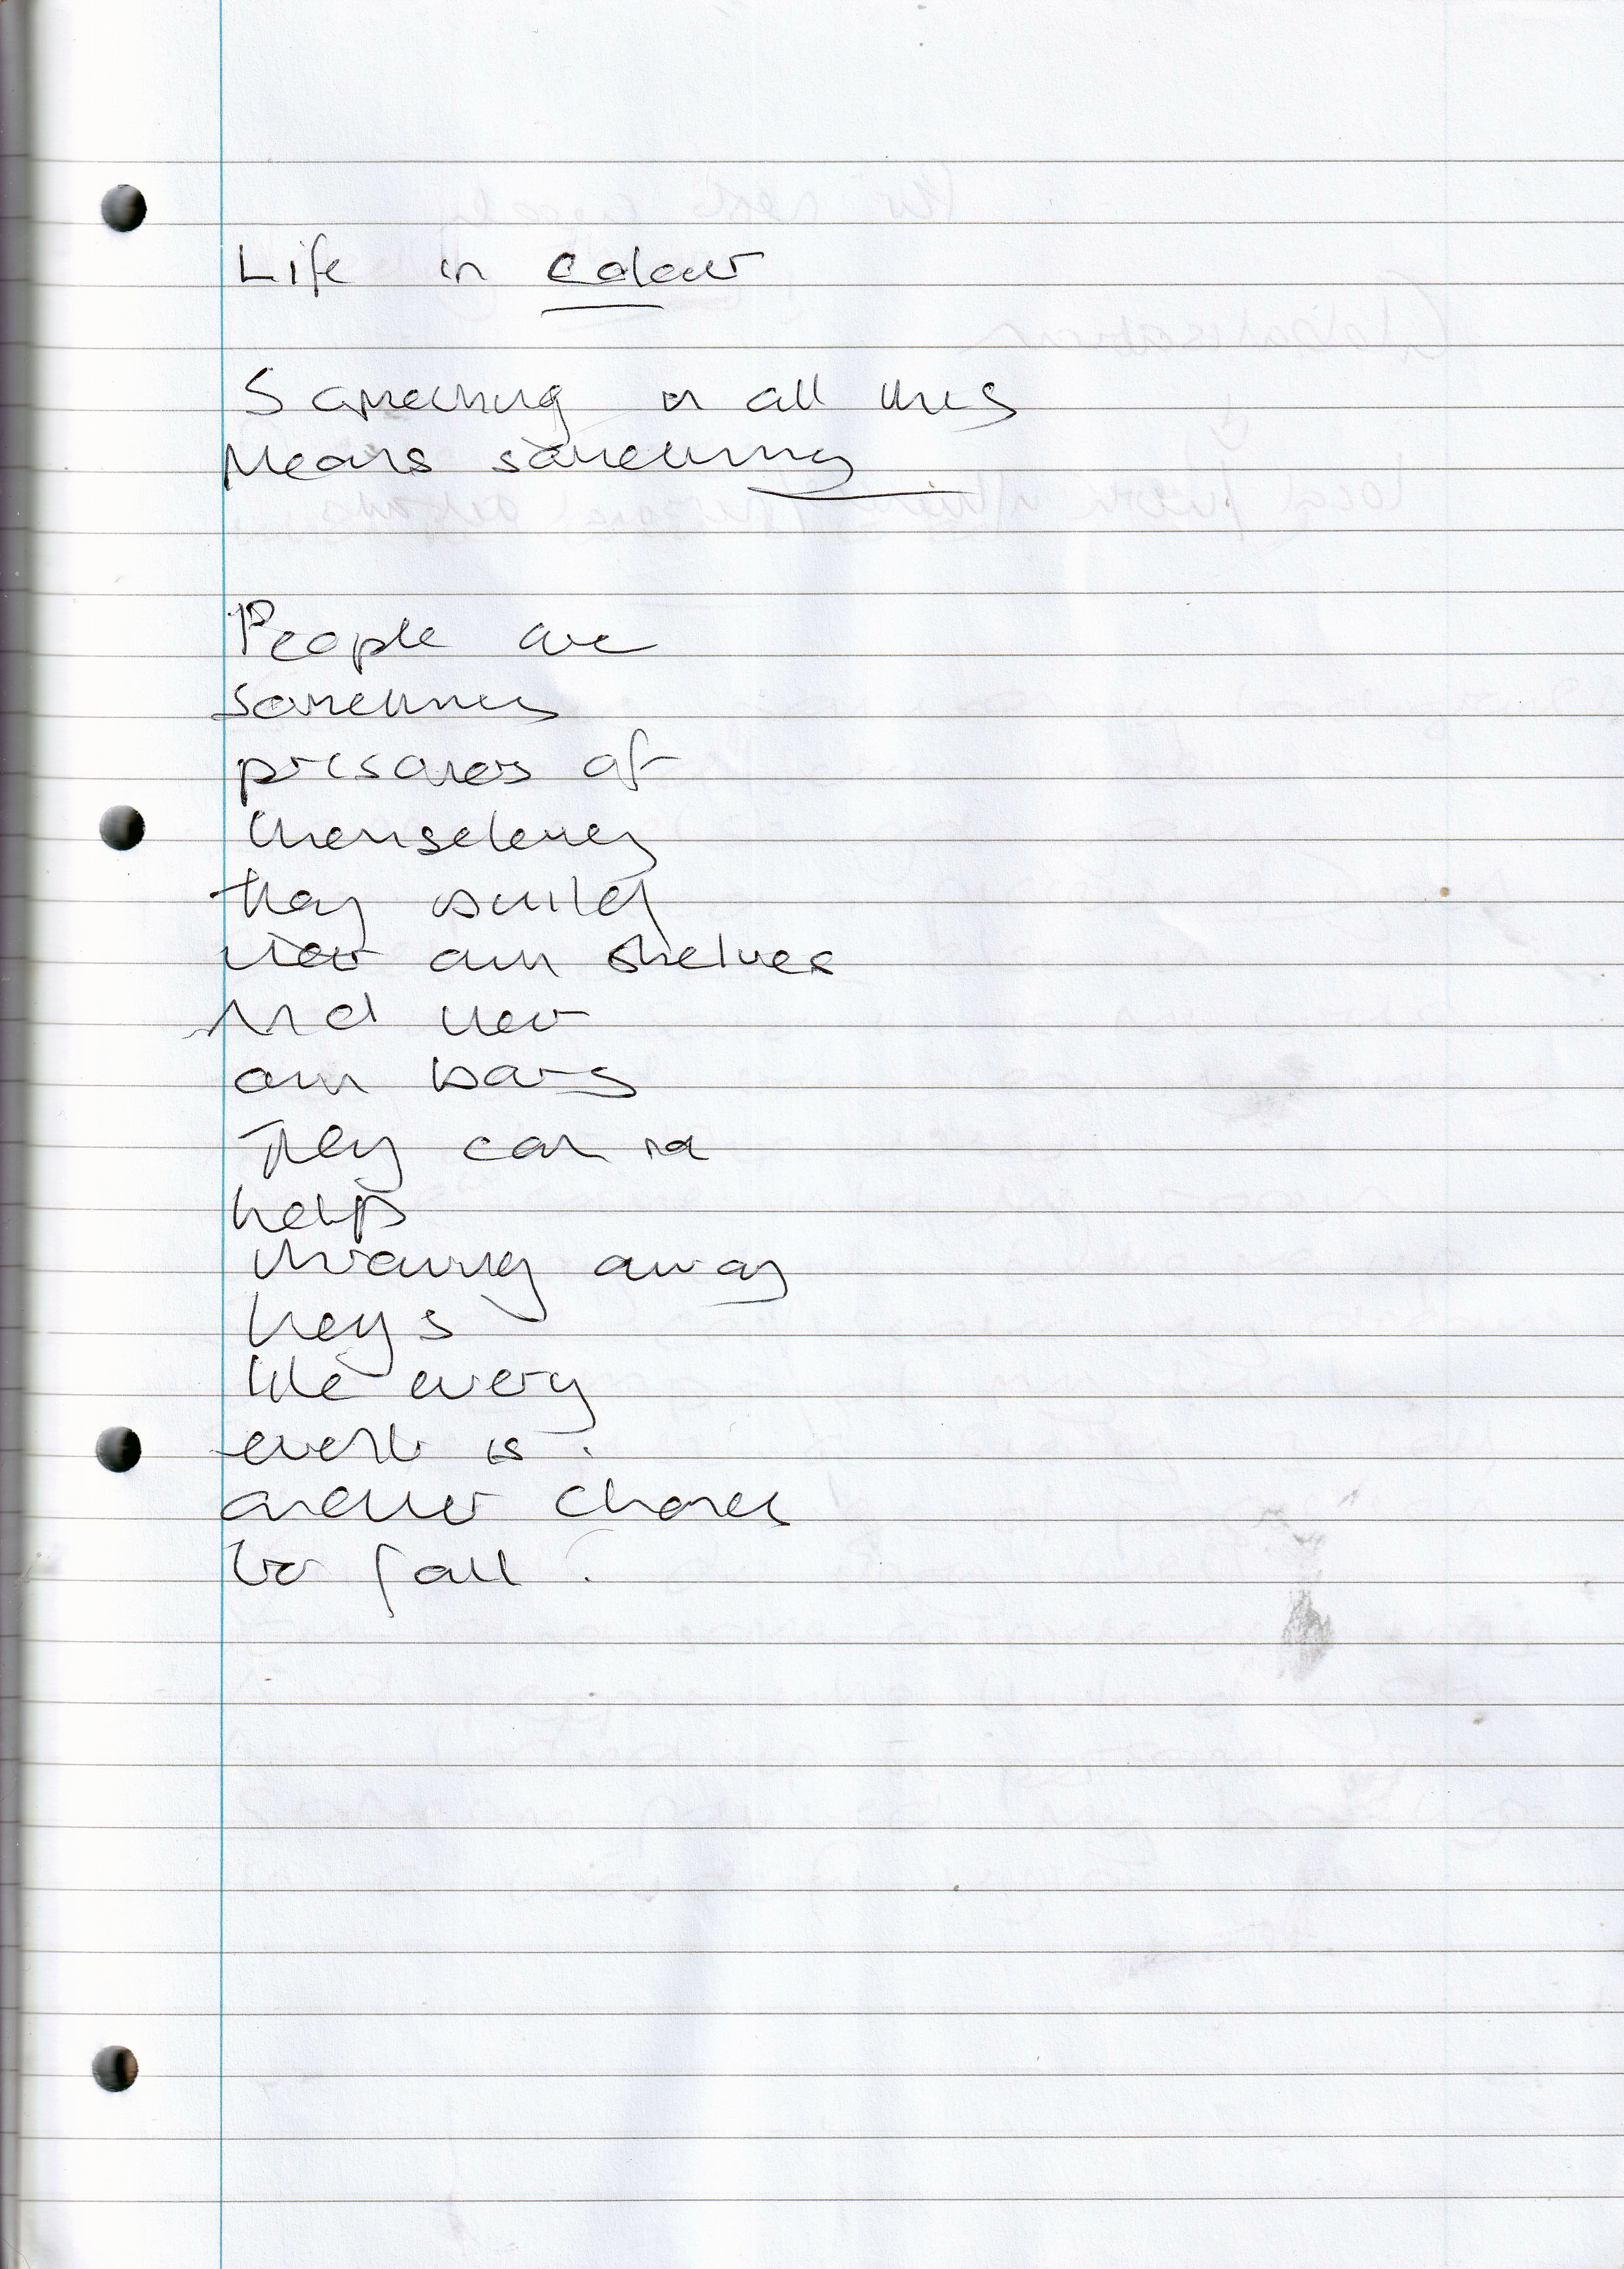 Life in colour
Something in all this
Means something
People are
sometimes
prisoners of
themselves
they build
their own shelves
And their
own bars
They can no
help
throwing away
keys
like every
event is
another chance
to fall.